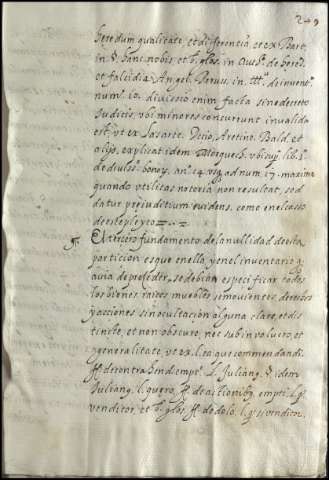 249
heredum qualitate, et differentia, et ex Bart.
in §. hanc nobis et ibi glos. in auth. de hered.
et falcidia Angel. Perus. in de invent.
num. 10. divissio enim facta sine decreto
Judicis, ubi minores concurrunt invalida
est, ut ex Jasone, Decio, Aretino, Bald. et
alijs, explicat idem ubi supra lib. 1.
de divis. bonor. 14. ad num. 17. maxime
quando utilitas notoria non resultat, sed
datur prejuditium evidens, como en el casso
de este pleyto
El tercero fundamento de la nullidad de esta
particion es que en ella, y en el inventario q
avia de proceder, se debian especificar todos
los bienes raices muebles semovientes, derechos
y acciones sin ocultacion alguna clare, et dis
tincte, et non obscure, nec sub involucro, et
generalitate, ut ex l. ea que commendandi.
ff. de contrahend. empt. L. Juliang. §. idem
Juliang. l. quero, ff. de actionibg. empti L. qi
venditor, et ibi glos. ff. de dolo. l. qi venditor.